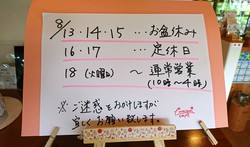 8/13・14・15 …お盆休み
16・17 …定休日
18(火曜日)〜通常営業
(10時〜4時)
※ご迷惑をおかけしますが
宜しくお願い致します。